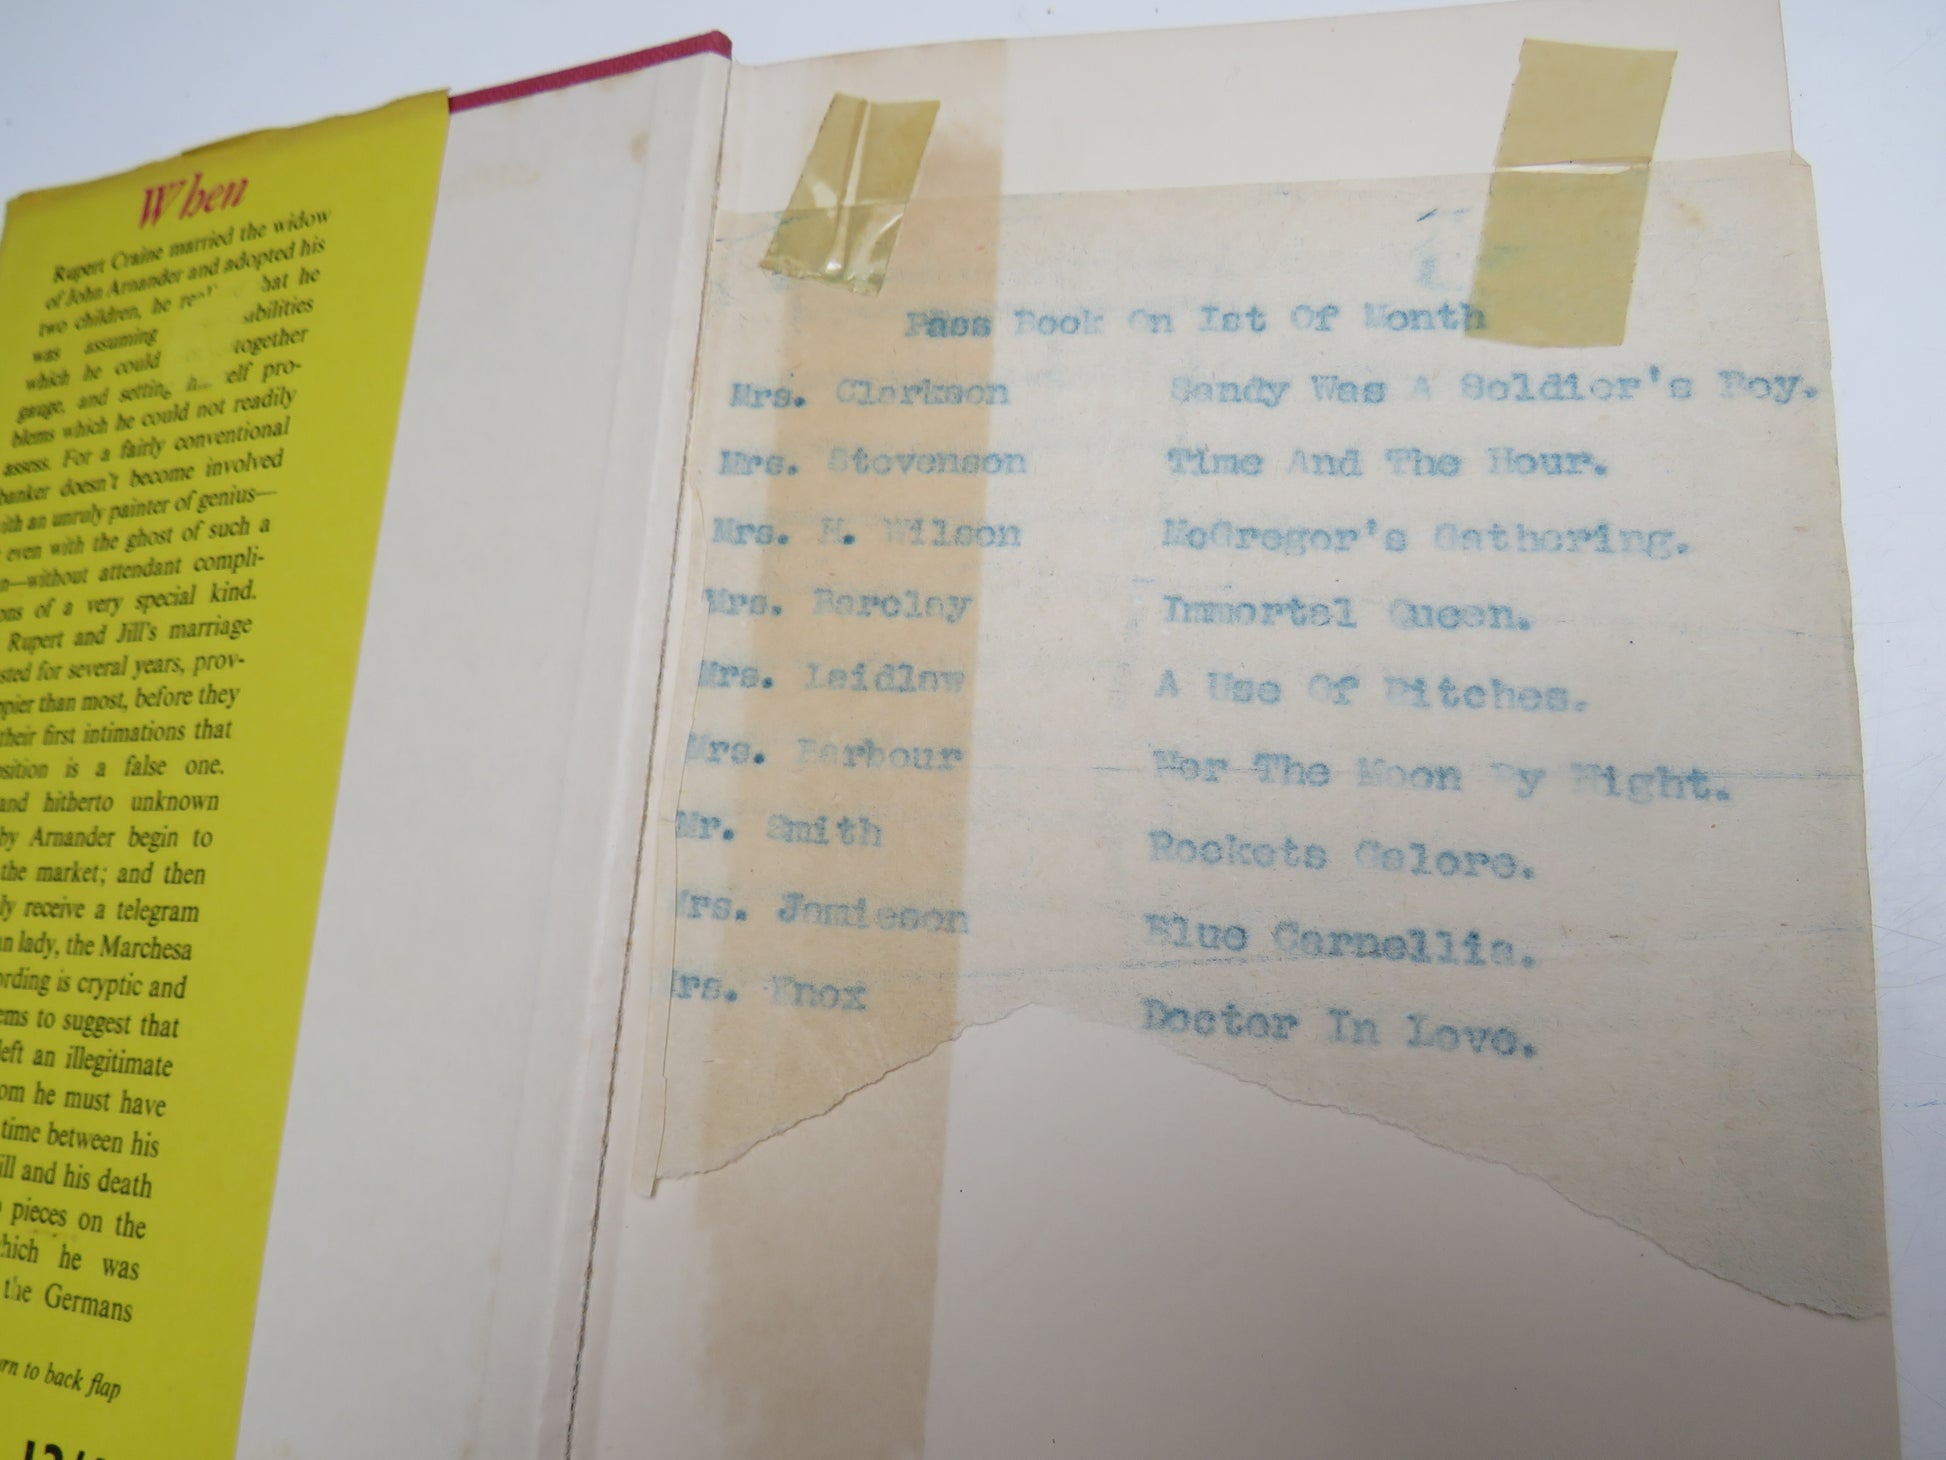 When
Rupert Craine married the widow
of John Arnander and adopted his
two children, he hat he
was assuming abilities
which he could together
gauge, and setting elf pro-
blems which he could not readily
assess. For a fairly conventional
banker doesn't become involved
ith an unruly painter of genius—
even with the ghost of such a
n—without attendant compli-
ons of a very special kind.
Rupert and Jill's marriage
sted for several years, prov-
ppier than most, before they
their first intimations that
sition is a false one.
and hitherto unknown
by Arnander begin to
the market; and then
ly receive a telegram
an lady, the Marchesa
ording is cryptic and
ems to suggest that
left an illegitimate
om he must have
time between his
ill and his death
pieces on the
hich he was
the Germans
rn to back flap
Pass Book On Ist Of Month
Mrs. Clarkson Sandy Was A Soldier's Boy.
Mrs. Stevenson Time And The Hour.
Mrs. H. Wilson McGregor's Gathering.
Mrs. Barclay Immortal Queen.
Mrs. Laidlaw A Use Of Ditches.
Mrs. Barbour Nor The Moon By Night.
Mr. Smith Rockets Galore.
Mrs. Jamieson Blue Carnellia.
Mrs. Knox Doctor In Love.